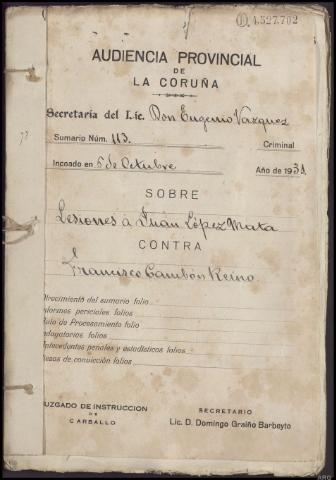 D. 4.527.702
AUDIENCIA PROVINCIAL
DE
LA CORUÑA
Secretaría del Lic. Don Eugenio Vazquez
Sumario Núm. 113. Criminal
Incoado en 5 de Octubre Año de 193
SOBRE
Lesiones á Juan López Mata
CONTRA
Francisco Cambón Reino
frecimiento del sumario folio
nformes periciales folios
uto de Procesamiento folio
ndagatorias folios
ntecedentes penales y estadísticos folios
iezas de convicción folios
UZGADO DE INSTRUCCION
DE
CARBALLO
SECRETARIO
Lic. D. Domingo Graiño Barbeyto